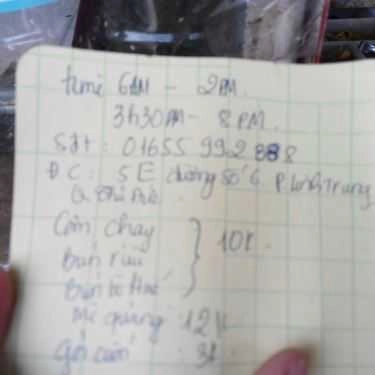 time 6AM - 2PM.
3h30PM - 8PM.
SĐT: 01655 992 888
ĐC: 5E đường số 6 P. Linh Trung
Q. Thủ Đức
Cơm chay
bún riêu } 10k.
bún bò Huế
Mì quảng : 12k
gỏi cuốn : 3k